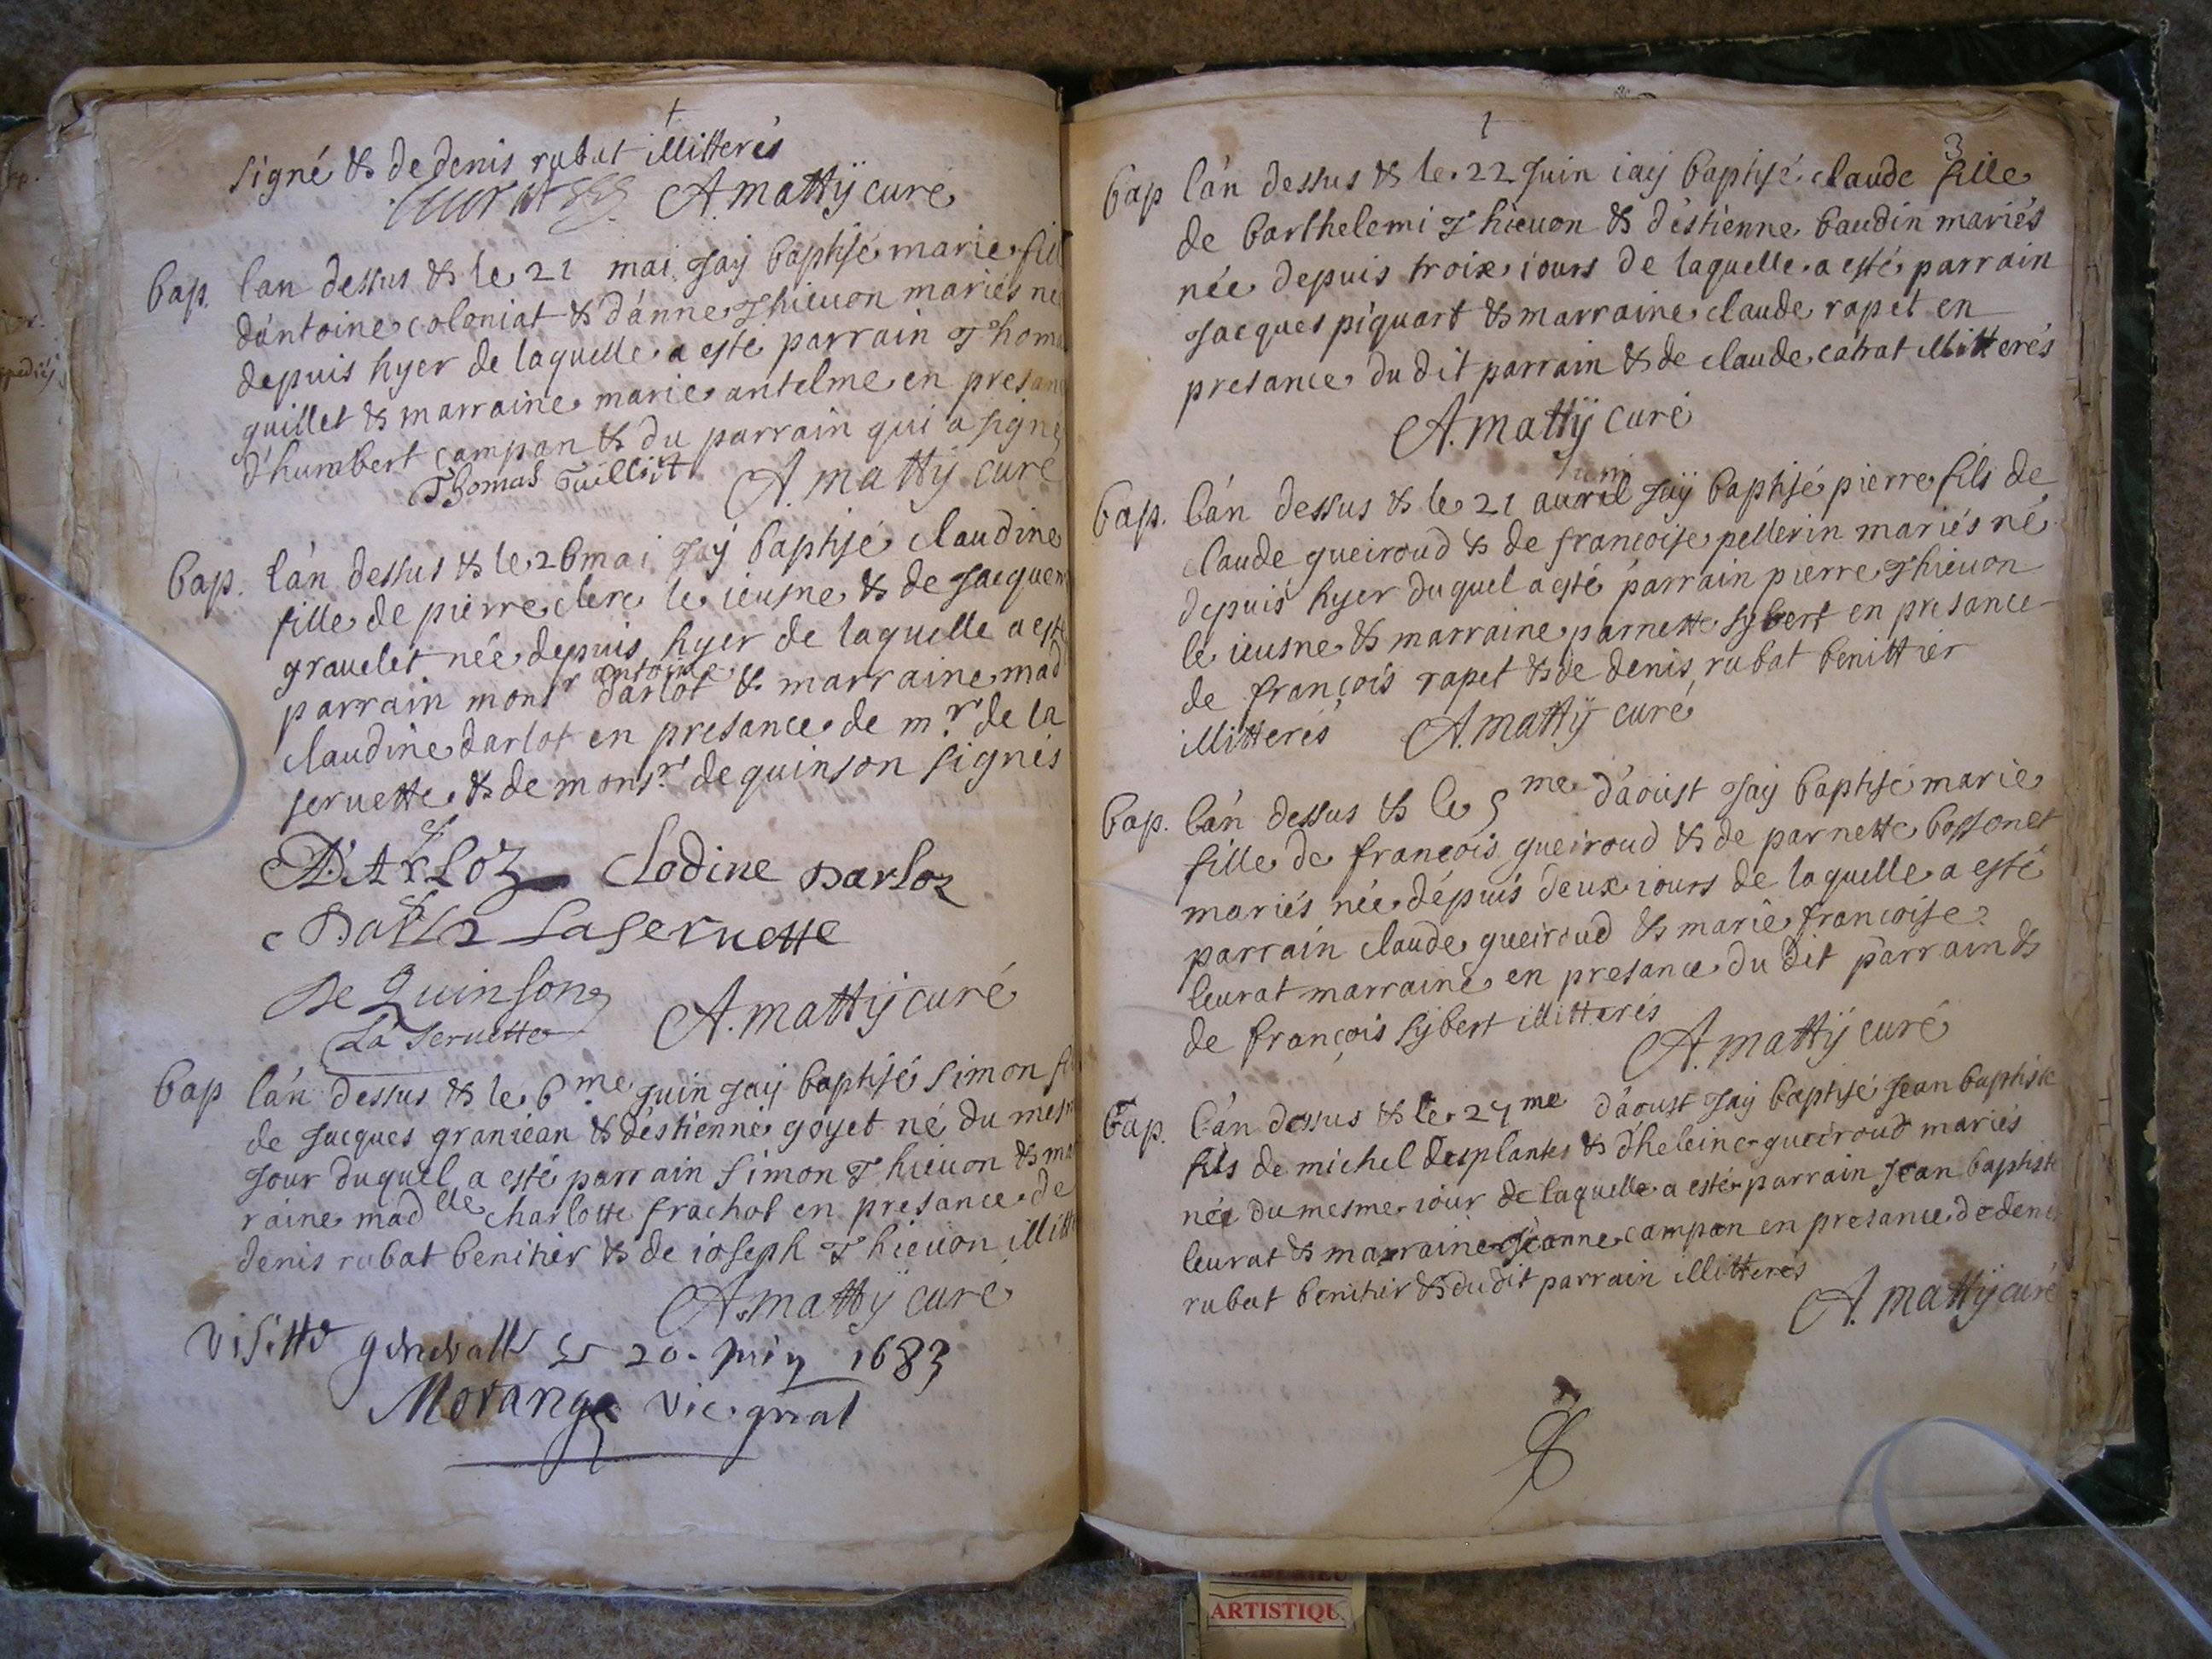 signé & de denis rubat illitterés
A. mattÿ curé
bap. lan dessus & le 21 mai Jaÿ baptisé marie fill
d'antoine coloniat & d'anne Thieuon mariés ne
depuis hyer de laquelle a esté parrain Thoma
guillet & marraine marie antelme en presan
d'humbert campan & du parrain qui a signé
Thomas Guilliet A. mattÿ curé
bap. l'an dessus & le 26 mai Jaÿ baptisé claudine
fille de pierre clerc le ieusne & de Jacquem
grauelet née depuis hyer de laquelle a esté
parrain monsr antoine darlot & marraine mad
claudine darlot en presance de mr. de la
seruette & de monsr. de quinson signés
DARLOZ Clodine Darloz
Darloz Laseruette
De Quinson
La Seruette A. mattÿ curé
bap l'an dessus & le 6me Juin Jaÿ baptisé simon fi
de Jacques granican & d'estienne goyet né du mesm
Jour duquel a esté parrain simon Thieuon & mar
raine madlle charlotte frachot en presance de
denis rubat benitier & de ioseph Thieuon illitt
A. mattÿ curé
Visitte generalle le 20. Juin 1683
Morange vic. gnal
3
bap l'an dessus & le 22 Juin iaÿ baptisé claude fille
de barthelemi Thieuon & d'estienne baudin mariés
née depuis troix iours de laquelle a esté parrain
Jacques piquart & marraine claude rapet en
presance du dit parrain & de claude catrat illitterés
A. mattÿ curé
bap. l'an dessus & le 21 auril juin Jaÿ baptisé pierre fils de
claude gueiroud & de francoise pellerin mariés né
depuis hyer duquel a esté parrain pierre Thieuon
le ieusne & marraine parnette sybert en presance
de françois rapet & de denis rubat benittier
illitterés A. mattÿ curé
bap. l'an dessus & le 5me d'aoust Jaÿ baptisé marie
fille de francois gueiroud & de parnette bossonet
mariés née depuis deux iours de laquelle a esté
parrain claude gueiroud & marie francoise
leurat marraine en presance du dit parrain &
de françois sybert illitterés
A. mattÿ curé
bap. l'an dessus & le 27me d'aoust Jaÿ baptisé Jean baptiste
fils de michel desplantes & d'heleine gueiroud mariés
né du mesme iour de laquelle a esté parrain Jean baptiste
leurat & marraine Jeanne campan en presance de denis
rubat benitier & du dit parrain illitterés
A. mattÿ curé
ARTISTIQU